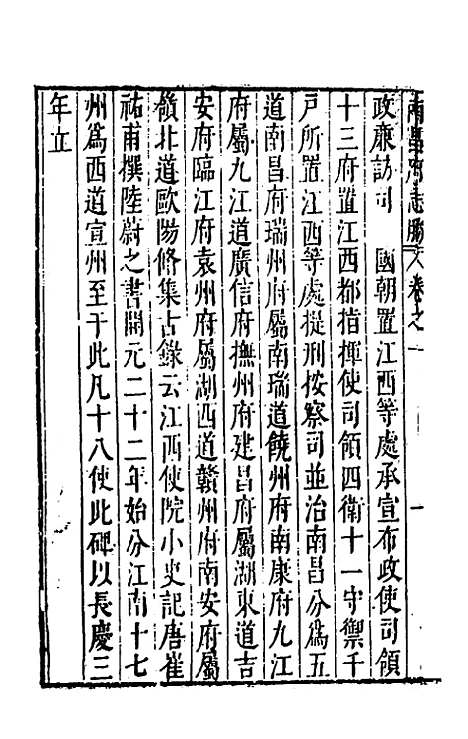 南昌府志勝 卷之一 一
政廉訪司 國朝置江西等處承宣布政使司領
十三府置江西都指揮使司領四衛十一守禦千
戸所置江西等處提刑按察司並治南昌分爲五
道南昌府瑞州府屬南瑞道饒州府南康府九江
府屬九江道廣信府撫州府建昌府屬湖東道吉
安府臨江府袁州府屬湖西道贛州府南安府屬
嶺北道歐陽脩集古錄云江西使院小史記唐崔
祐甫撰陸蔚之書開元二十二年始分江南十七
州爲西道宣州至于此凡十八使此碑以長慶三
年立